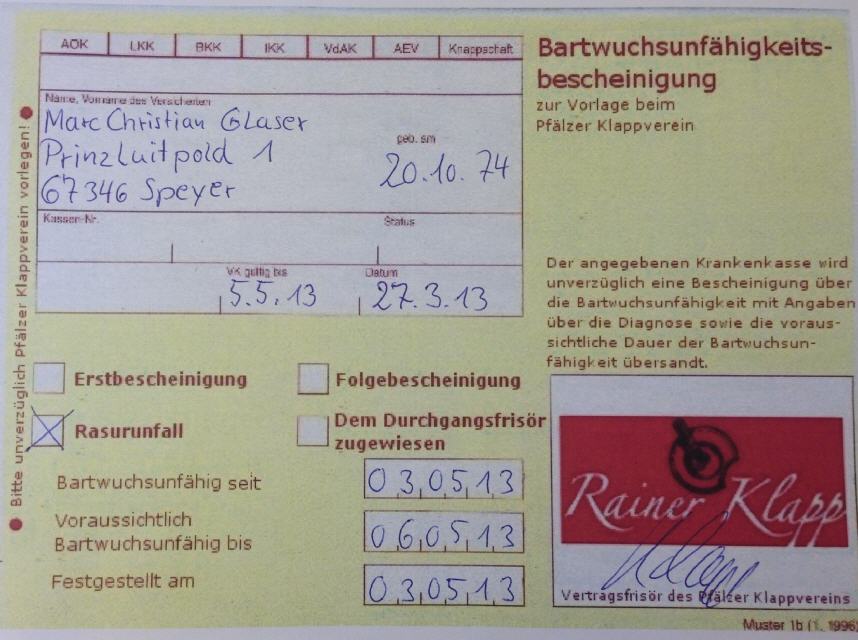 AOK LKK BKK IKK VdAK AEV Knappschaft
Bartwuchsunfähigkeits-
bescheinigung
zur Vorlage beim
Pfälzer Klappverein
Bitte unverzüglich Pfälzer Klappverein vorlegen!
Name, Vorname des Versicherten
Marc Christian Glaser
geb. am
Prinzluitpold 1
20.10.74
67346 Speyer
Kassen-Nr.
Status
VK gültig bis
Datum
5.5.13
27.3.13
Der angegebenen Krankenkasse wird
unverzüglich eine Bescheinigung über
die Bartwuchsunfähigkeit mit Angaben
über die Diagnose sowie die voraus-
sichtliche Dauer der Bartwuchsun-
fähigkeit übersandt.
Erstbescheinigung
Folgebescheinigung
Rasurunfall
Dem Durchgangsfrisör
zugewiesen
Bartwuchsunfähig seit
03.05.13
Voraussichtlich
Bartwuchsunfähig bis
06.05.13
Festgestellt am
03.05.13
Rainer Klapp
Vertragsfrisör des Pfälzer Klappvereins
Muster 1b (1. 1996)